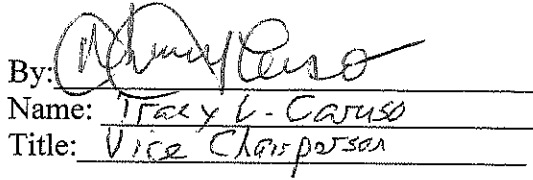 By:
Name: Tracy L. Caruso
Title: Vice Chairperson